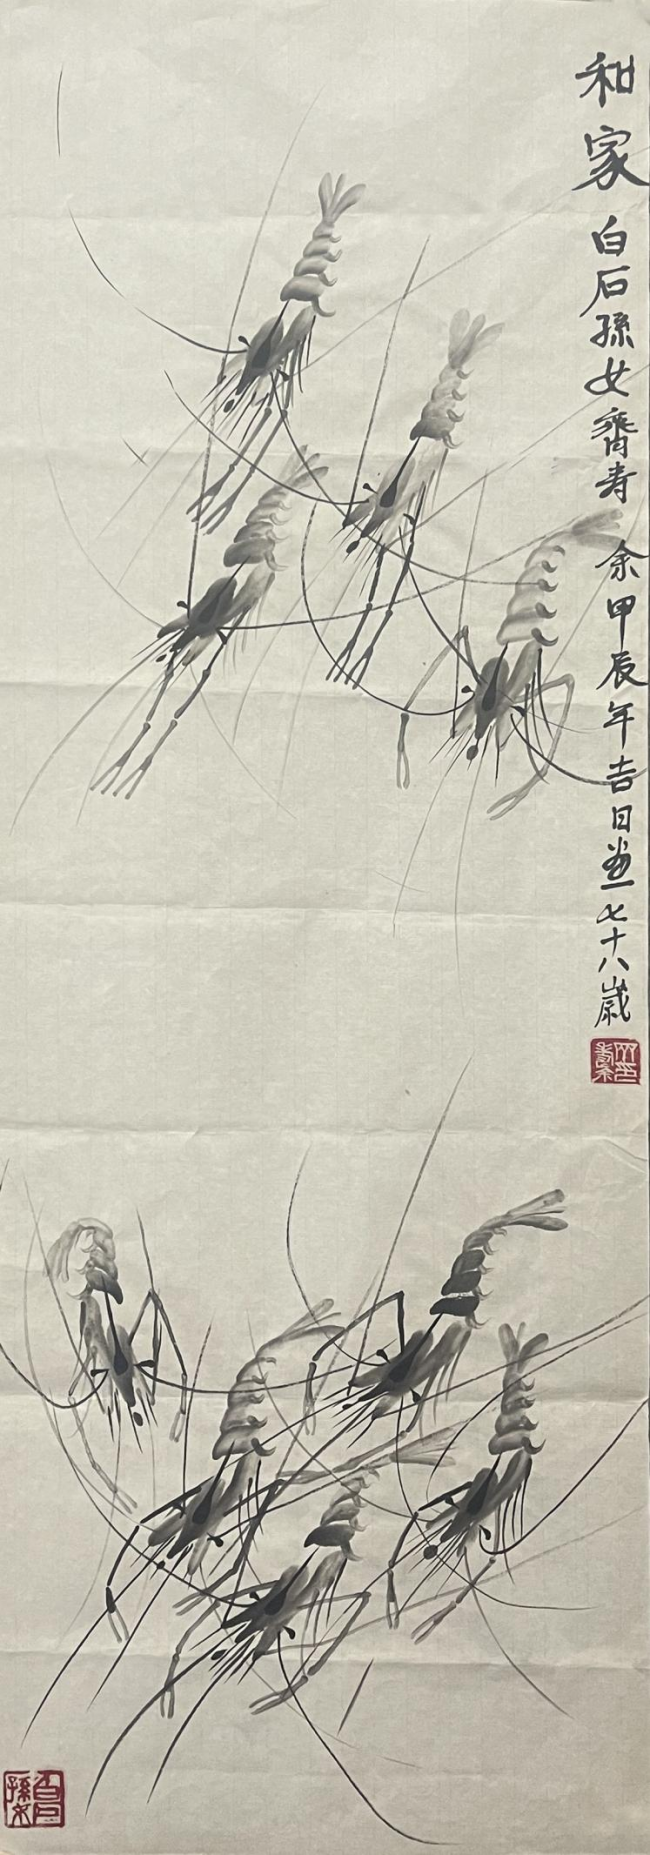 和家 白石孫女齊寿 余甲辰年吉日画 七十八歲
白石孫女